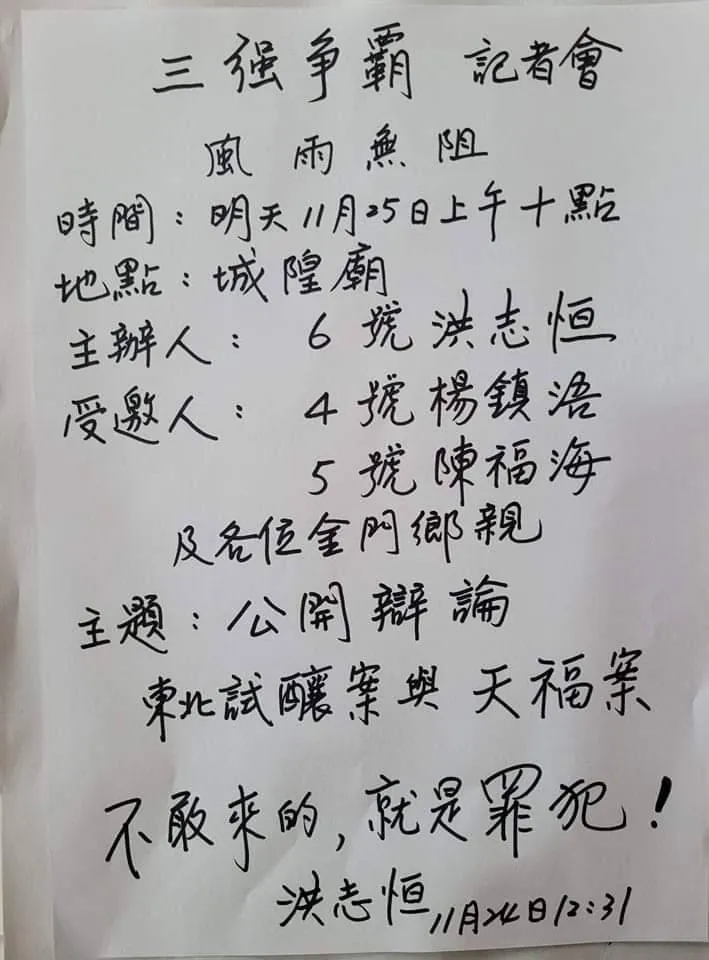 三强爭霸 記者會
風雨無阻
時間：明天11月25日上午十點
地點：城隍廟
主辦人： 6號洪志恒
受邀人： 4號楊鎮浯
5號陳福海
及各位金門鄉親
主題：公開辯論
東北試釀案與天福案
不敢來的，就是罪犯！
洪志恒 11月24日12:31